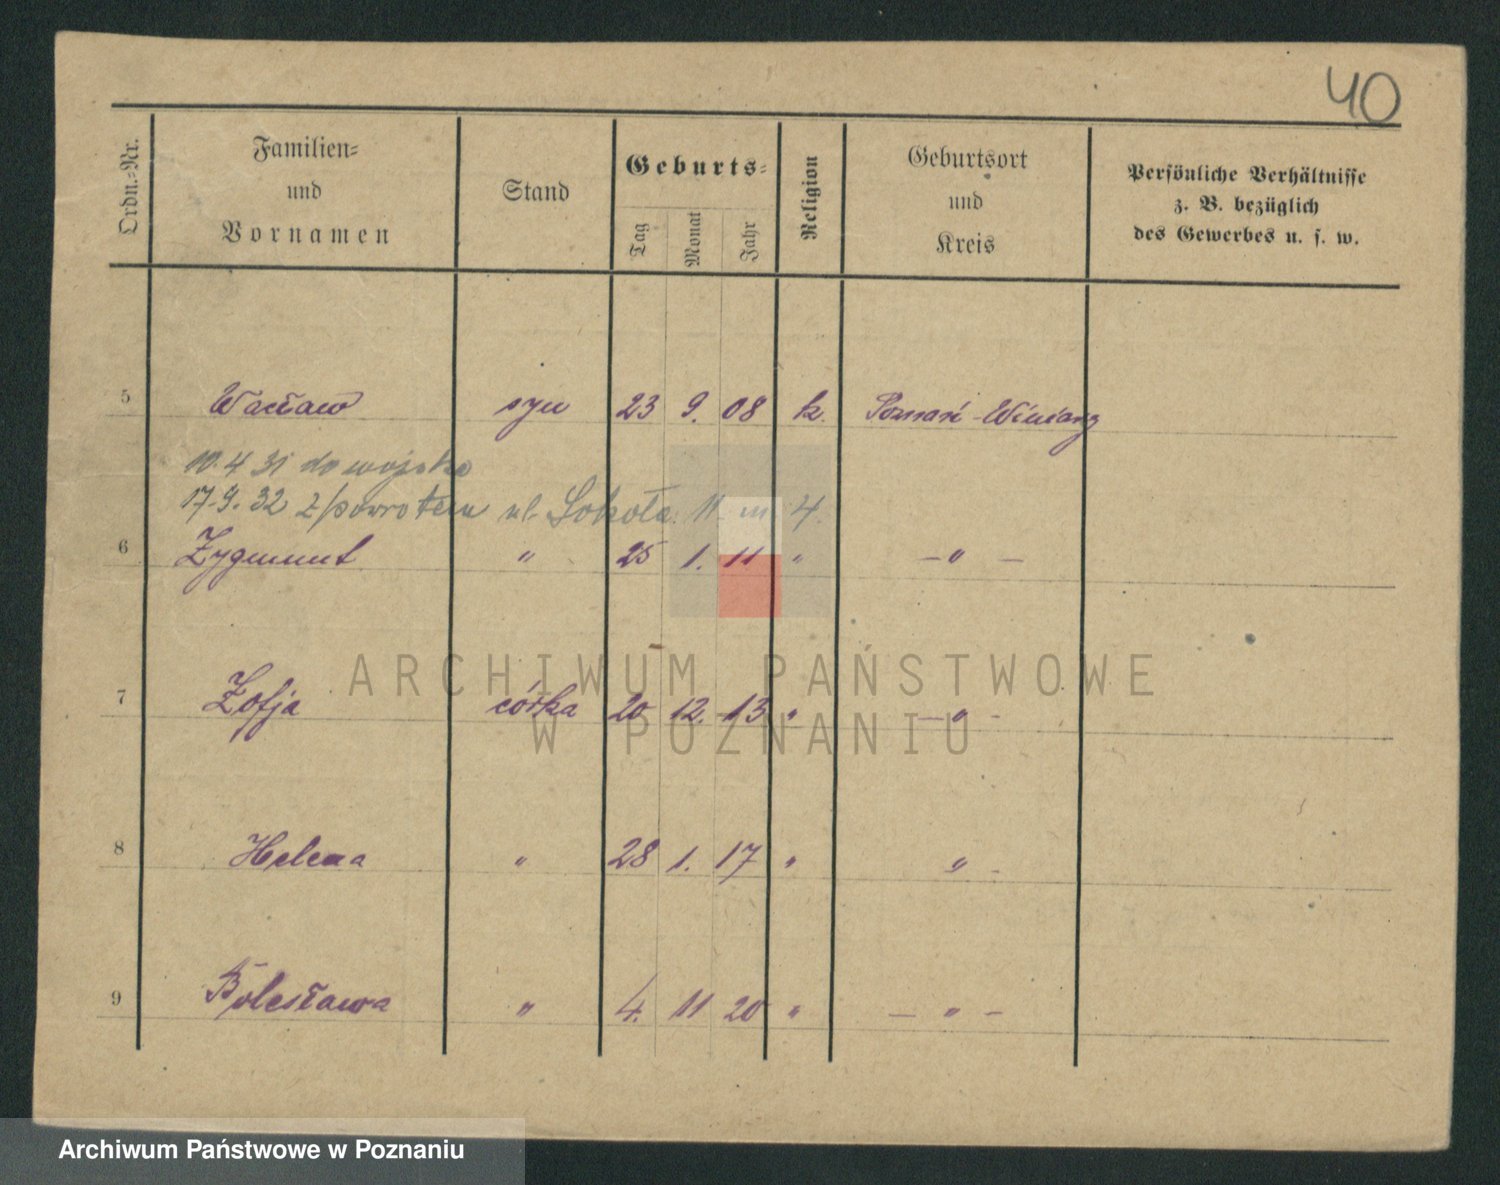 40
Ordn.-Nr. Familien- und Vornamen Stand Geburts- Tag Monat Jahr Religion Geburtsort und Kreis Persönliche Verhältnisse z. B. bezüglich des Gewerbes u. s. w.
5 Wacław syn 23 9. 08 k. Poznań-Winiary
10.4 31 do wojska
17.9.32 z powrotem ul. Sokoła 11 m 4.
6 Zygmunt " 25 1. 11 " — " —
7 Zofja córka 20 12. 13 " — " -
8 Helena " 28 1. 17 " " -
9 Bolesława " 4. 11 20 " — " —
ARCHIWUM PAŃSTWOWE
W POZNANIU
Archiwum Państwowe w Poznaniu